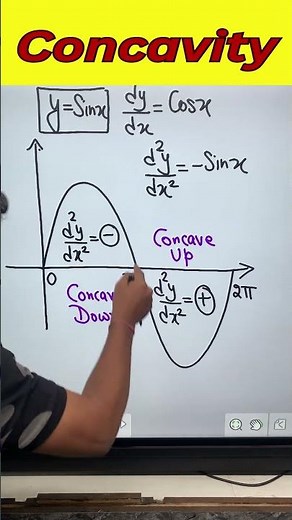 Concavity
y=Sinx dy/dx = Cosx
d²y/dx² = -Sinx
d²y/dx² = -
Concave
Up
0
Concav
Dow
d²y/dx² = +
2π